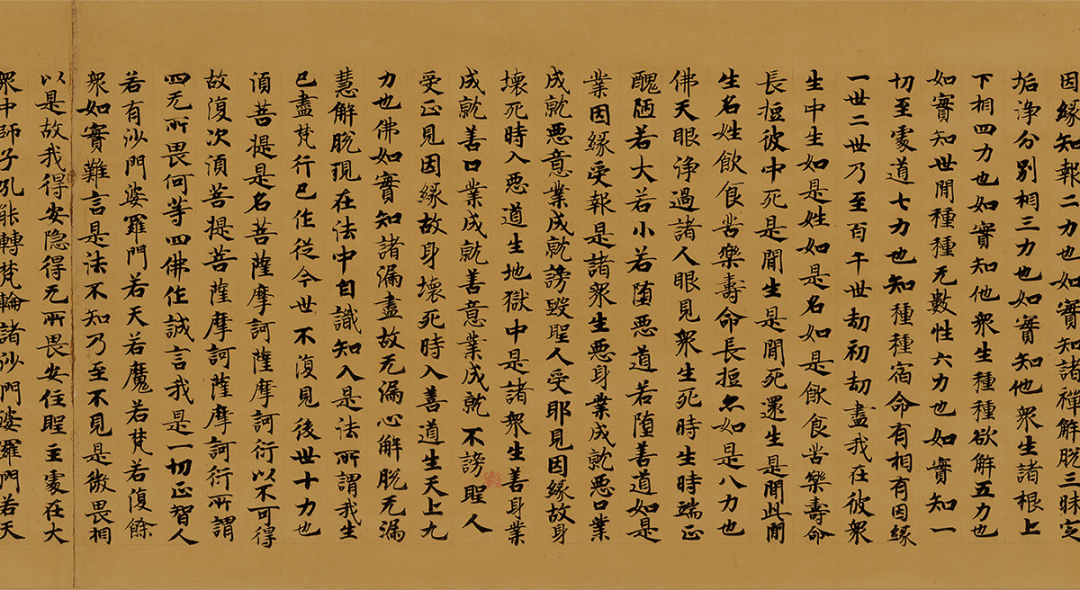 因緣知報二力也如實知諸禪解脫三昧定
垢淨分別相三力也如實知他衆生諸根上
下相四力也如實知他衆生種種欲解五力也
如實知世間種種无數性六力也如實知一
切至處道七力也知種種宿命有相有因緣
一世二世乃至百千世劫初劫盡我在彼衆
生中生如是姓如是名如是飲食苦樂壽命
長短彼中死是間生是間死還生是間此間
生名姓飲食苦樂壽命長短亦如是八力也
佛天眼淨過諸人眼見衆生死時生時端正
醜陋若大若小若墮惡道若墮善道如是
業因緣受報是諸衆生惡身業成就惡口業
成就惡意業成就謗毀聖人受耶見因緣故身
壞死時入惡道生地獄中是諸衆生善身業
成就善口業成就善意業成就不謗聖人
受正見因緣故身壞死時入善道生天上九
力也佛如實知諸漏盡故无漏心解脫无漏
慧解脫現在法中自識知入是法所謂我生
已盡梵行已作從今世不復見後世十力也
湏菩提是名菩薩摩訶薩摩訶衍以不可得
故復次湏菩提菩薩摩訶薩摩訶衍所謂
四无所畏何等四佛作誠言我是一切正智人
若有沙門婆羅門若天若魔若梵若復餘
衆如實難言是法不知乃至不見是微畏相
以是故我得安隱得无所畏安住聖主處在大
衆中師子吼能轉梵輪諸沙門婆羅門若天